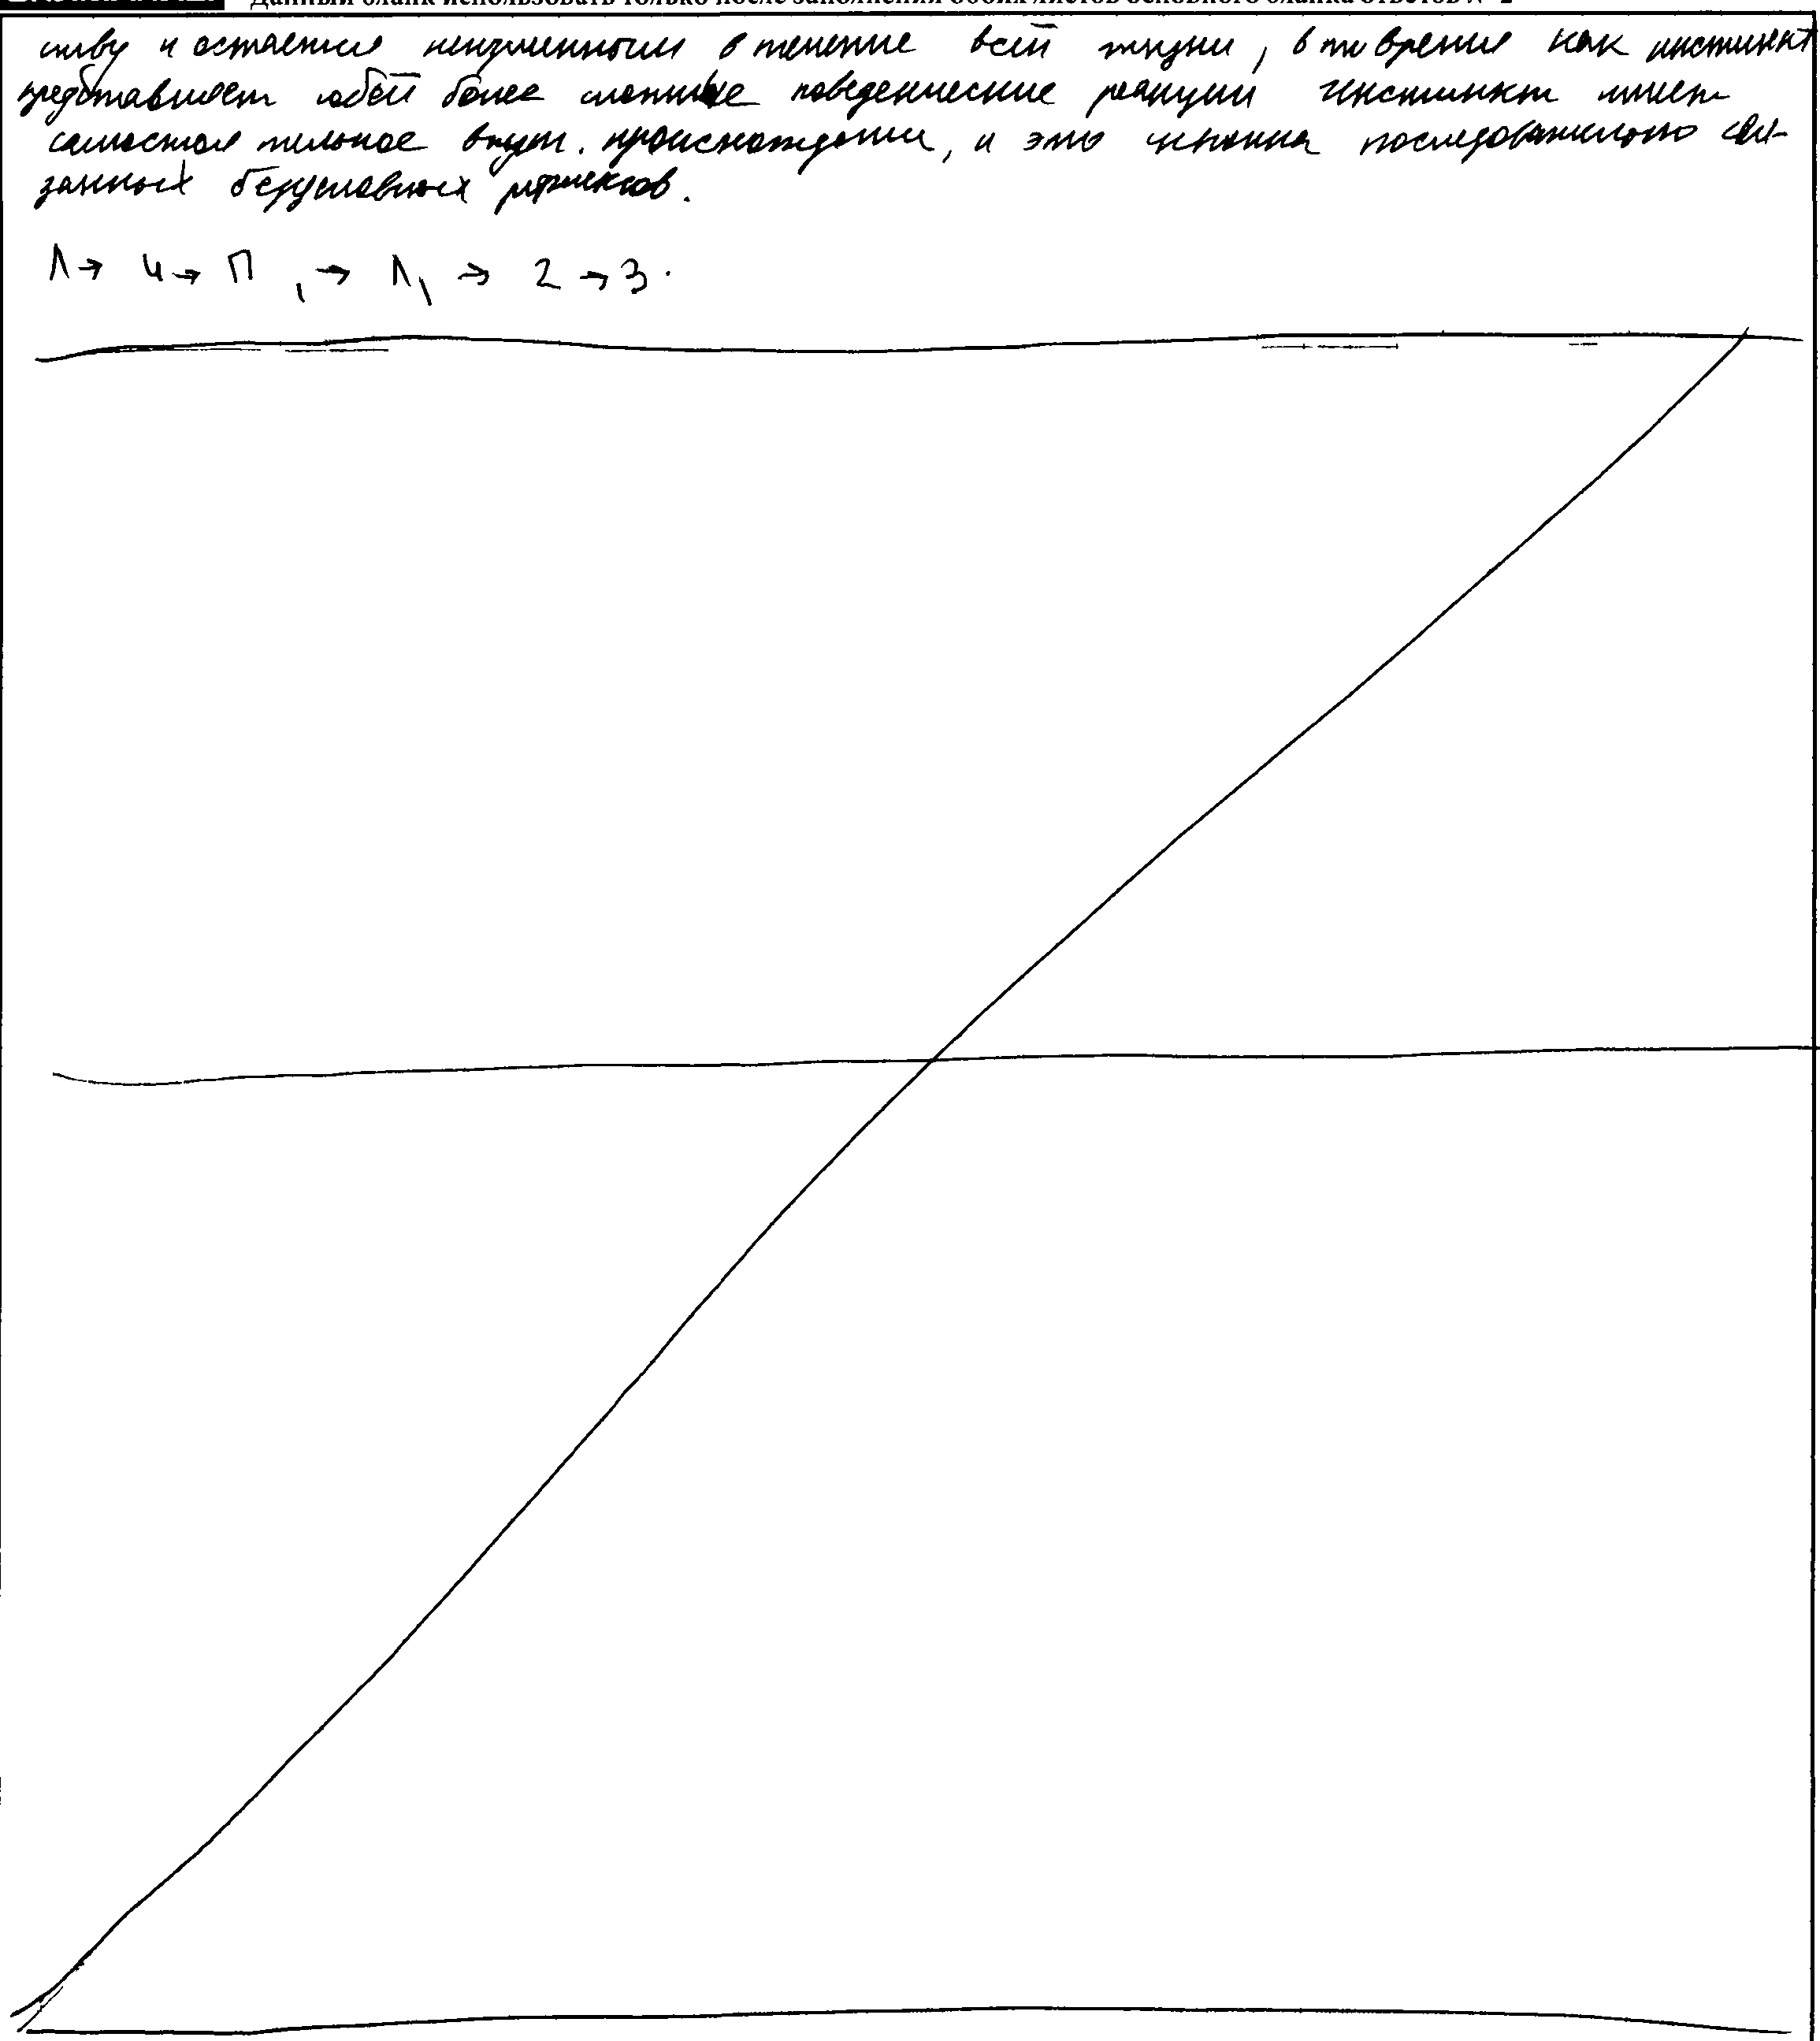 Данный бланк использовать только после заполнения обоих листов основного бланка ответов № 2
ству и остается неизменным в течение всей жизни, в то время как инстинкт
представляет собой более сложные поведенческие реакции Инстинкт имеет
самостоятельное внут. происхождение, и это цепочка последовательно свя-
занных безусловных рефлексов.
Л → 4 → П, → Л, → 2 → 3.